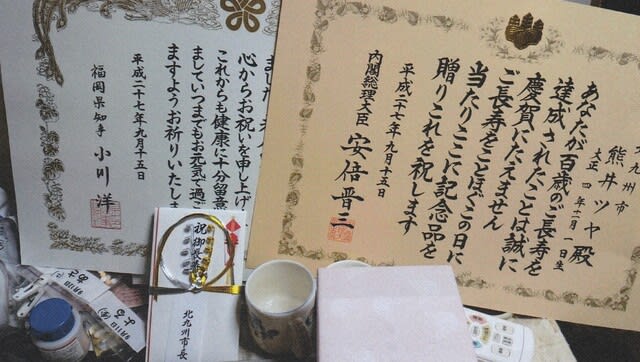 九州市
熊井ツヤ殿
大正四年
あなたが百歳のご長寿を
達成されたことは誠に
慶賀にたえません
ご長寿をことほぐこの日に
当たりここに記念品を
贈りこれを祝します
平成二十七年九月十五日
内閣総理大臣 安倍晋三
ました
心からお祝いを申し上げ
これからも健康に十分留意
ましていつまでもお元気で過ご
ますようお祈りいたしま
平成二十七年九月十五日
福岡県知事 小川洋
祝御長寿
北九州市長
あさ
よる